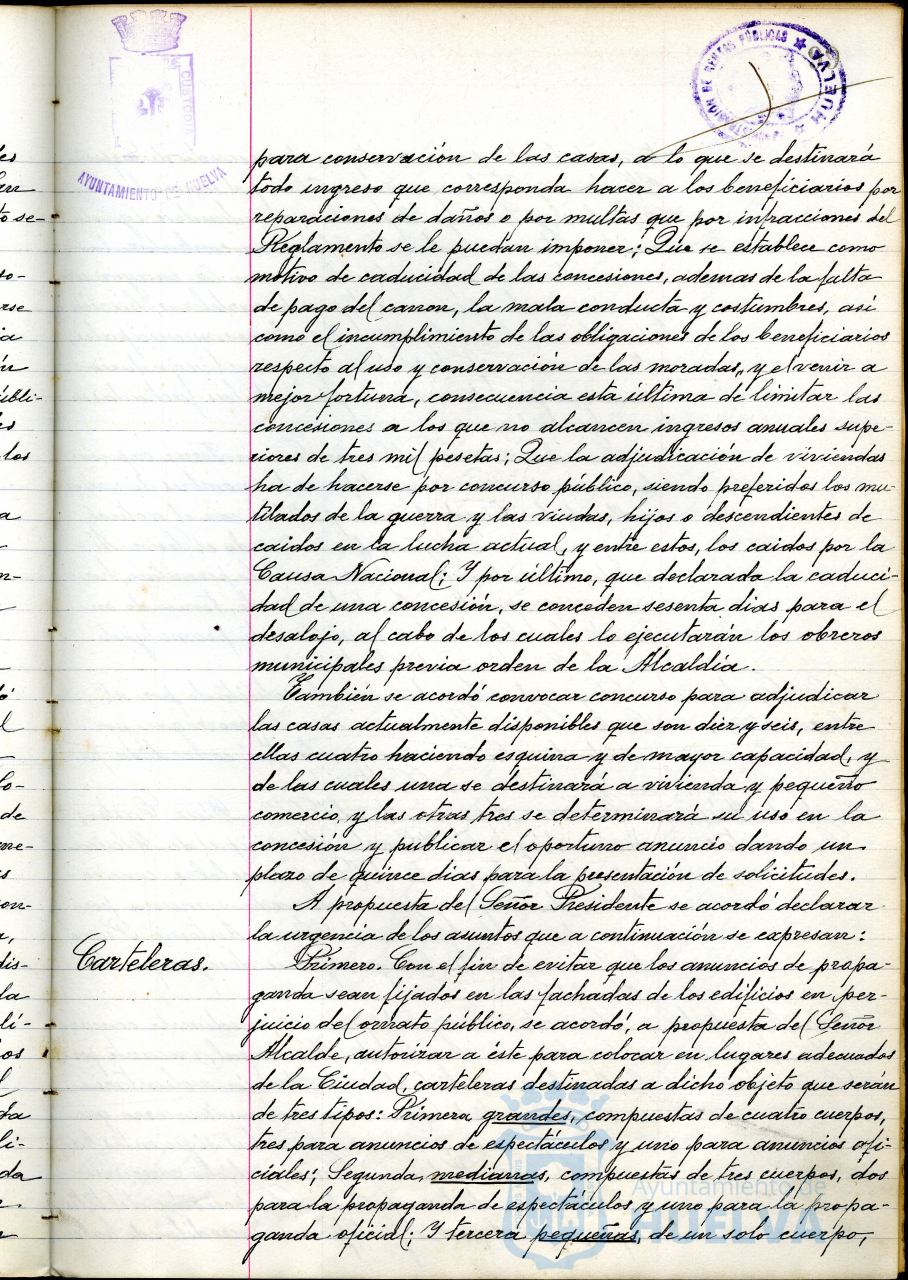 CUSTODIA
AYUNTAMIENTO DE HUELVA
RENTAS PÚBLICAS
HUELVA
para conservación de las casas, a lo que se destinará
todo ingreso que corresponda hacer a los beneficiarios por
reparaciones de daños o por multas que por infracciones del
Reglamento se le puedan imponer; Que se establece como
motivo de caducidad de las concesiones, ademas de la falta
de pago del canon, la mala conducta y costumbres, asi
como el incumplimiento de las obligaciones de los beneficiarios
respecto al uso y conservación de las moradas, y el venir a
mejor fortuna, consecuencia esta última de limitar las
concesiones a los que no alcancen ingresos anuales supe-
riores de tres mil pesetas; Que la adjudicación de viviendas
ha de hacerse por concurso público, siendo preferidos los mu-
tilados de la guerra y las viudas, hijos o descendientes de
caidos en la lucha actual, y entre estos, los caidos por la
Causa Nacional; Y por último, que declarada la caduci-
dad de una concesión, se conceden sesenta dias para el
desalojo, al cabo de los cuales lo ejecutarán los obreros
municipales previa orden de la Alcaldía.
También se acordó convocar concurso para adjudicar
las casas actualmente disponibles que son diez y seis, entre
ellas cuatro haciendo esquina y de mayor capacidad, y
de las cuales una se destinará a vivienda y pequeño
comercio, y las otras tres se determinará su uso en la
concesión y publicar el oportuno anuncio dando un
plazo de quince dias para la presentación de solicitudes.
A propuesta del Señor Presidente se acordó declarar
la urgencia de los asuntos que a continuación se expresan:
Carteleras.
Primero. Con el fin de evitar que los anuncios de propa-
ganda sean fijados en las fachadas de los edificios en per-
juicio del ornato público, se acordó, a propuesta del Señor
Alcalde, autorizar a éste para colocar en lugares adecuados
de la Ciudad, carteleras destinadas a dicho objeto que serán
de tres tipos: Primera grandes, compuestas de cuatro cuerpos,
tres para anuncios de espectáculos y uno para anuncios ofi-
ciales; Segunda, medianas, compuestas de tres cuerpos, dos
para la propaganda de espectáculos y uno para la propa-
ganda oficial; Y tercera pequeñas, de un solo cuerpo,
Ayuntamiento de
HUELVA